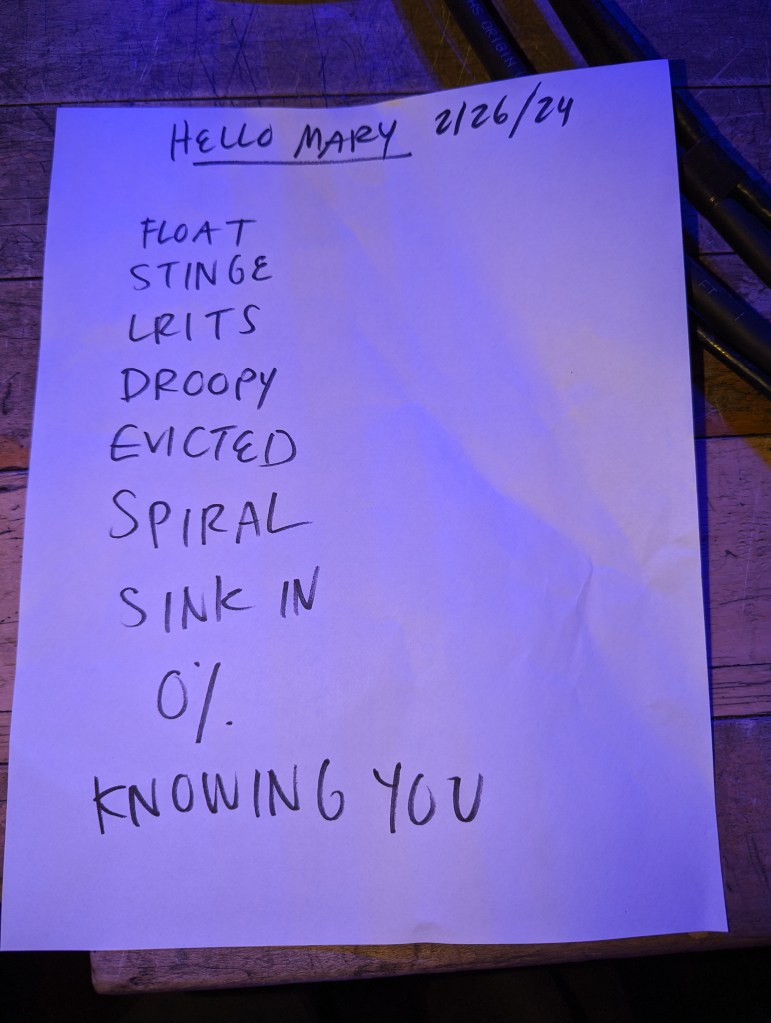 HELLO MARY 2/26/24
FLOAT
STINGE
LRITS
DROOPY
EVICTED
SPIRAL
SINK IN
0%
KNOWING YOU
ORIGIN